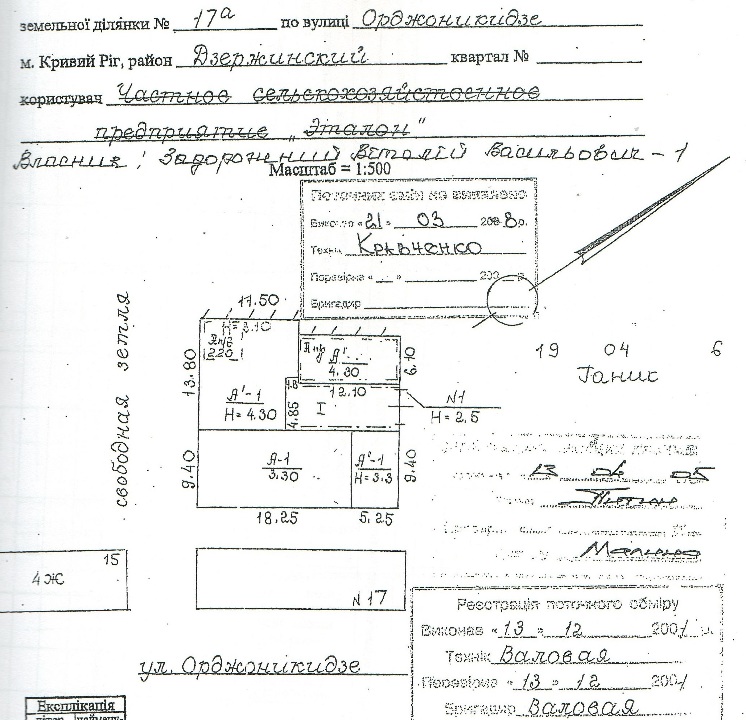 земельної ділянки № 17а по вулиці Орджоникидзе
м. Кривий Ріг, район Дзержинский квартал №
користувач Частное сельскохозяйственное
предприятие „Эталон"
Власник: Задорожний Віталій Васильович - 1
Масштаб = 1:500
Поточних змін не виявлено
Виконав «21» 03 2008р.
Технік Кравченко
Перевірив « » 200 р.
Бригадир
11.50
h=3.10
220
13.80
А'-1
H=4.30
А'
4.30
6.10
12.10
4.85
I
N1
H=2.5
19 04 6
Ганис
свободная земля
9.40
А-1
3.30
А²-1
H=3.3
9.40
18.25
5.25
13 06 05
15
4Ж
N17
ул. Орджоникидзе
Реєстрація поточного обміру
Виконав «13» 12 2001 р.
Технік Валовая
Перевірив «13» 12 2001
Бригадир Валовая
Експлікація